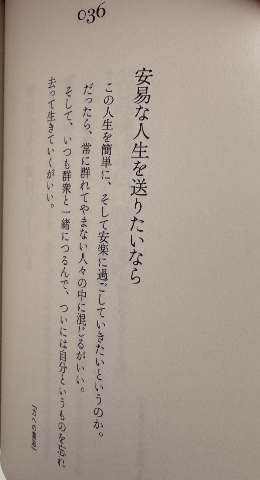 036
安易な人生を送りたいなら
この人生を簡単に、そして安楽に過ごしていきたいというのか。
だったら、常に群れてやまない人々の中に混じるがいい。
そして、いつも群衆と一緒につるんで、ついには自分というものを忘れ
去って生きていくがいい。
『力への意志』